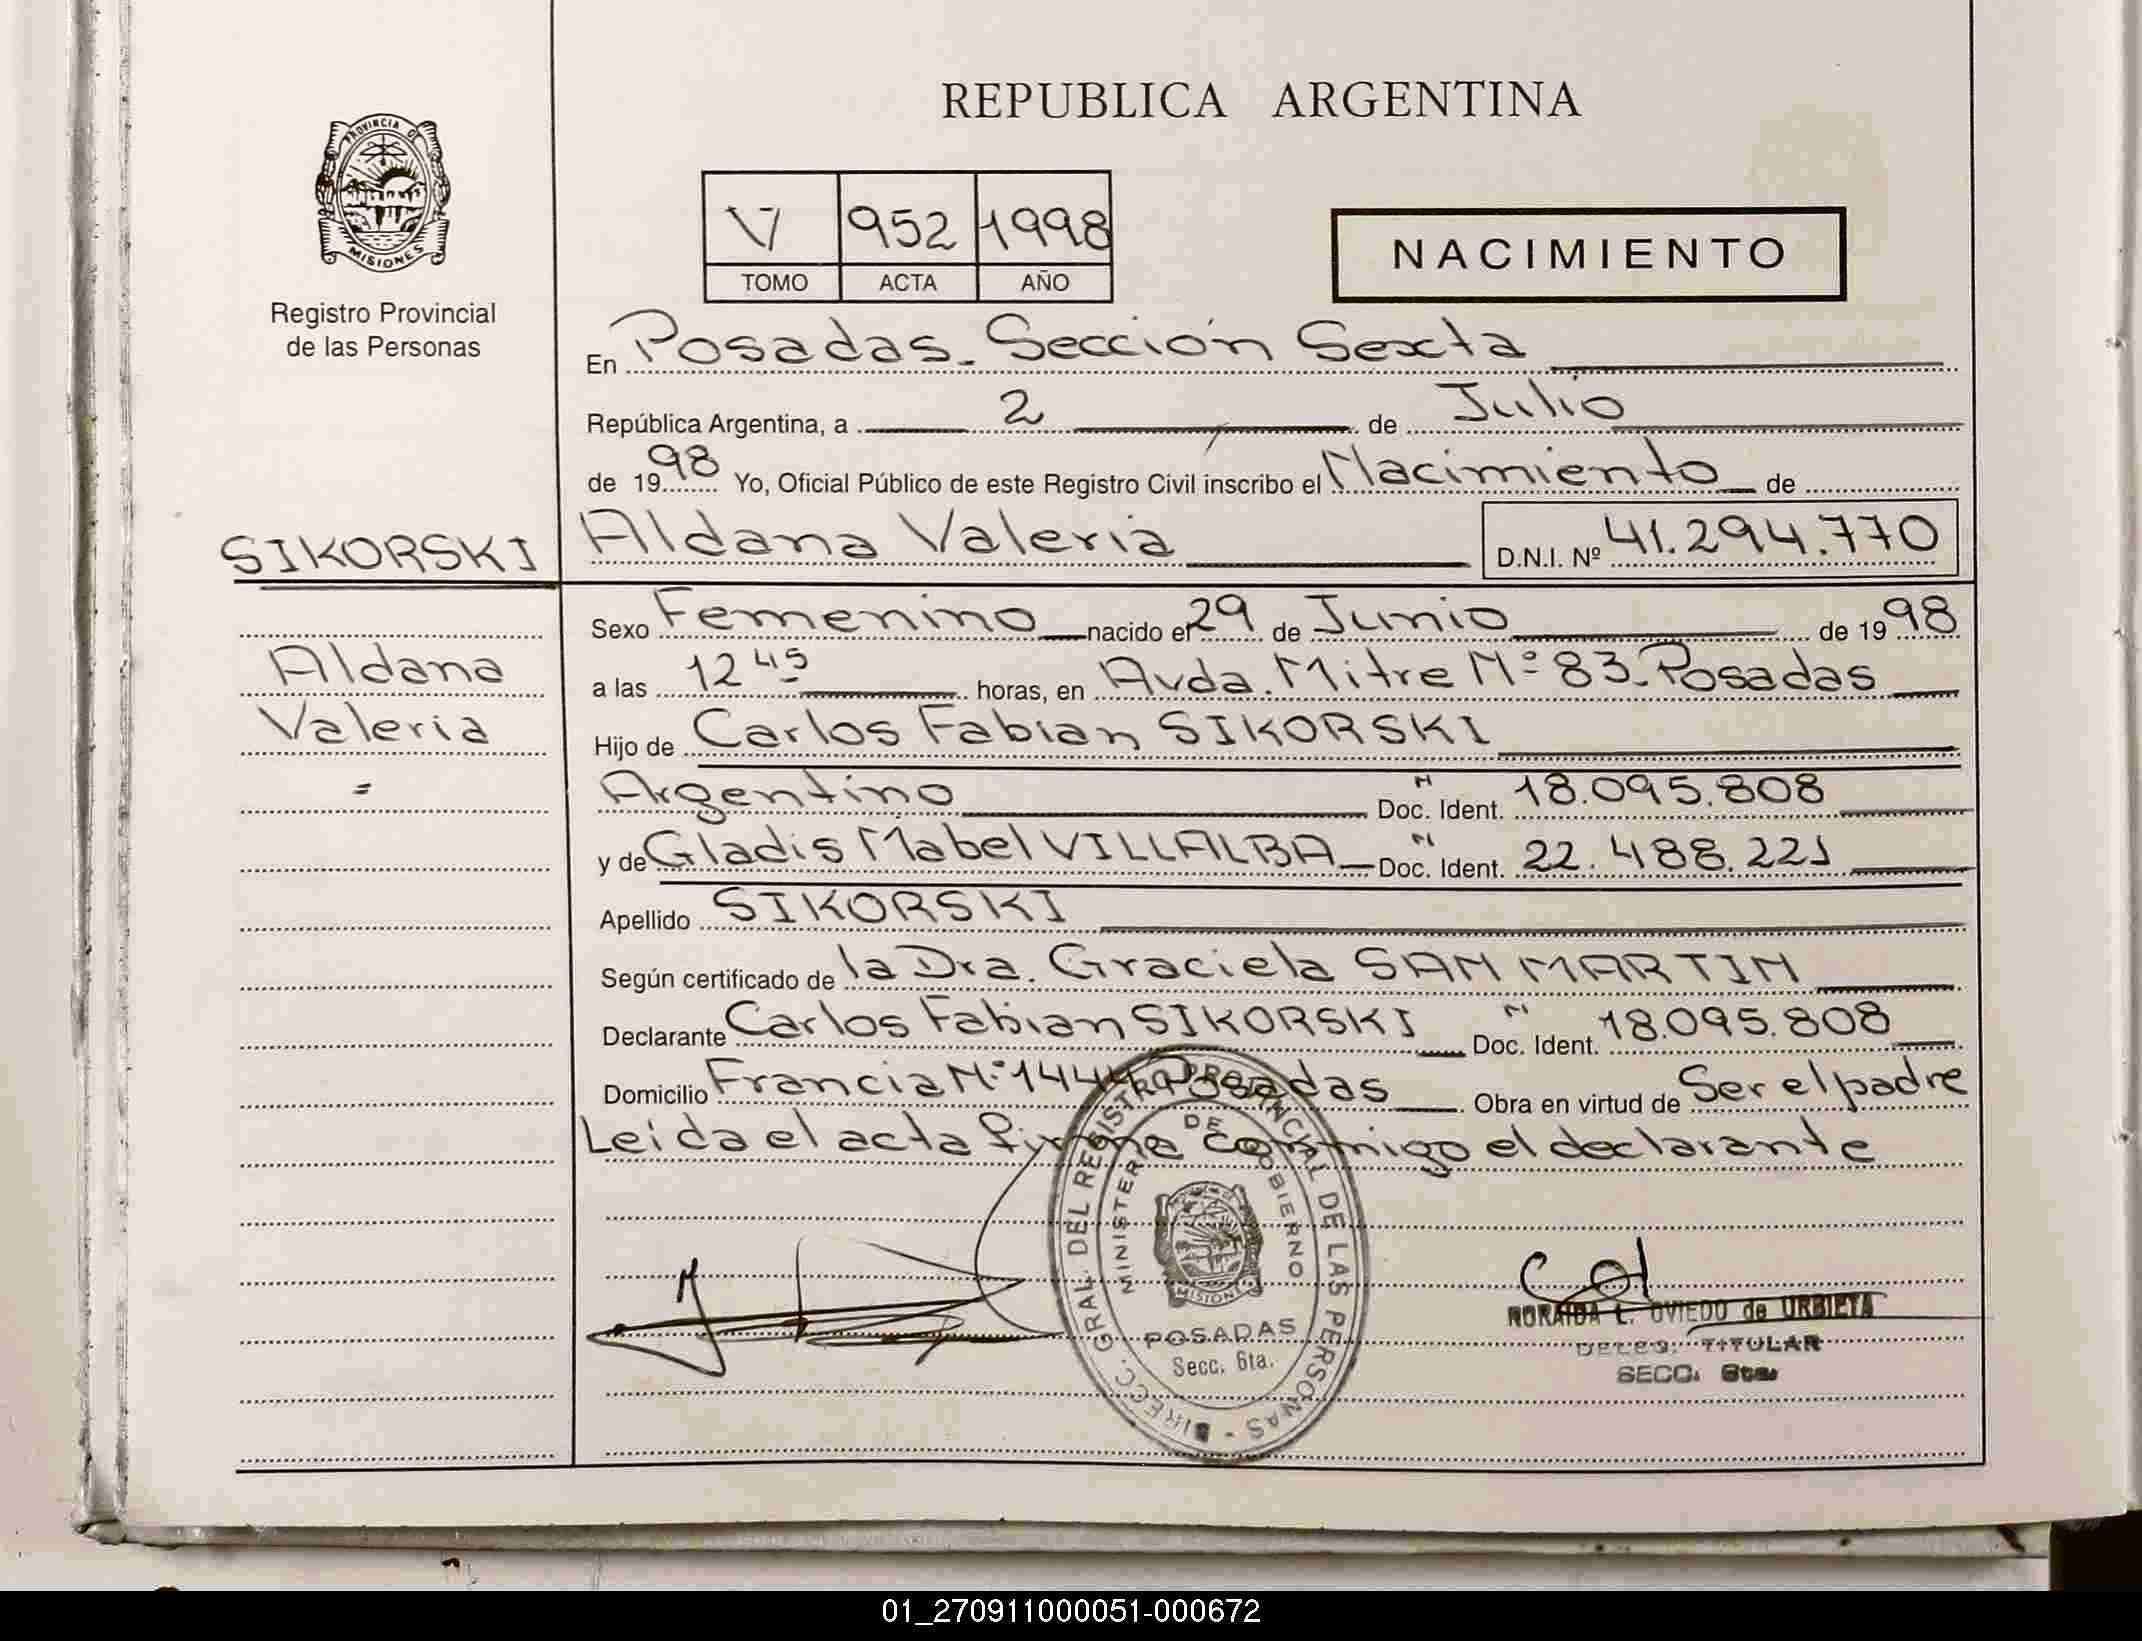 REPUBLICA ARGENTINA
PROVINCIA D
MISIONES
Registro Provincial
de las Personas
V 952 1998
TOMO ACTA AÑO
NACIMIENTO
En Posadas. Sección Sexta
República Argentina, a 2 de Julio
de 1998 Yo, Oficial Público de este Registro Civil inscribo el Nacimiento de
SIKORSKI
Aldana Valeria D.N.I. Nº 41.294.770
Sexo Femenino nacido el 29 de Junio de 1998
Aldana
a las 12 45 horas, en Avda. Mitre Nº 83. Posadas
Valeria
Hijo de Carlos Fabian SIKORSKI
=
Argentino Doc. Ident. 18.095.808
y de Gladis Mabel VILLALBA Doc. Ident. 22.488.221
Apellido SIKORSKI
Según certificado de la Dra. Graciela SAN MARTIN
Declarante Carlos Fabian SIKORSKI Doc. Ident. 18.095.808
Domicilio Francia Nº 1444 Posadas Obra en virtud de Ser el padre
Leida el acta firma conmigo el declarante
DIRECC. GRAL. DEL REGISTRO PROVINCIAL DE LAS PERSONAS -
MINISTERIO DE GOBIERNO
MISIONES
POSADAS
Secc. 6ta.
NORAIDA L. OVIEDO de URBIETA
DELEG. TITULAR
SECC. 6ta.
01_270911000051-000672